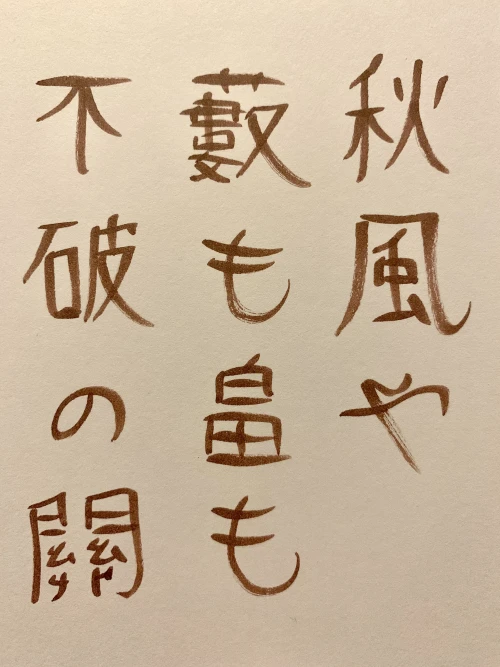 秋風や
藪も畠も
不破の關